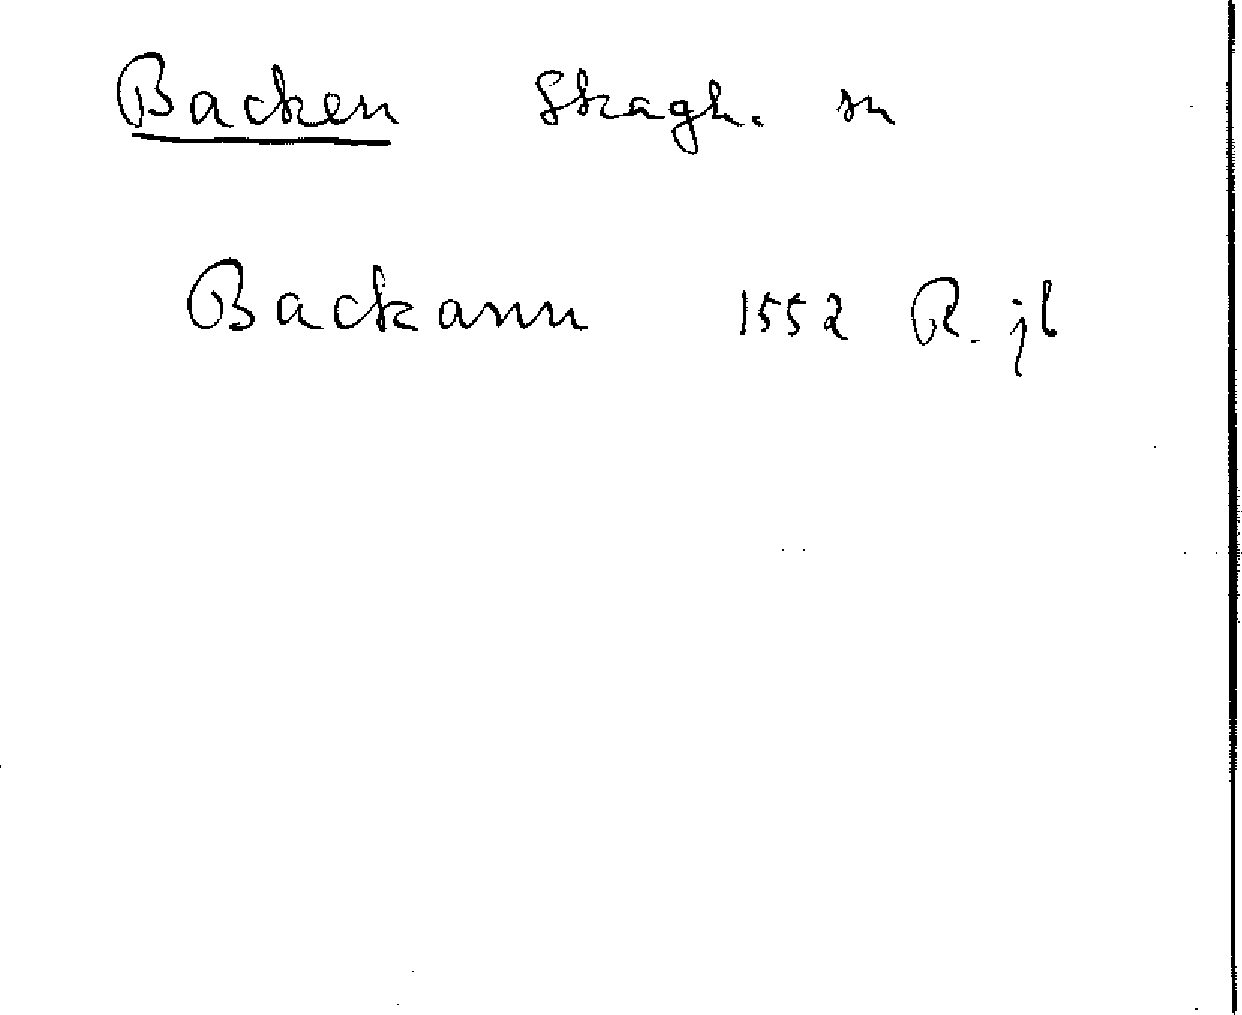 Backen Skagh. sn
Backann 1552 R. jb